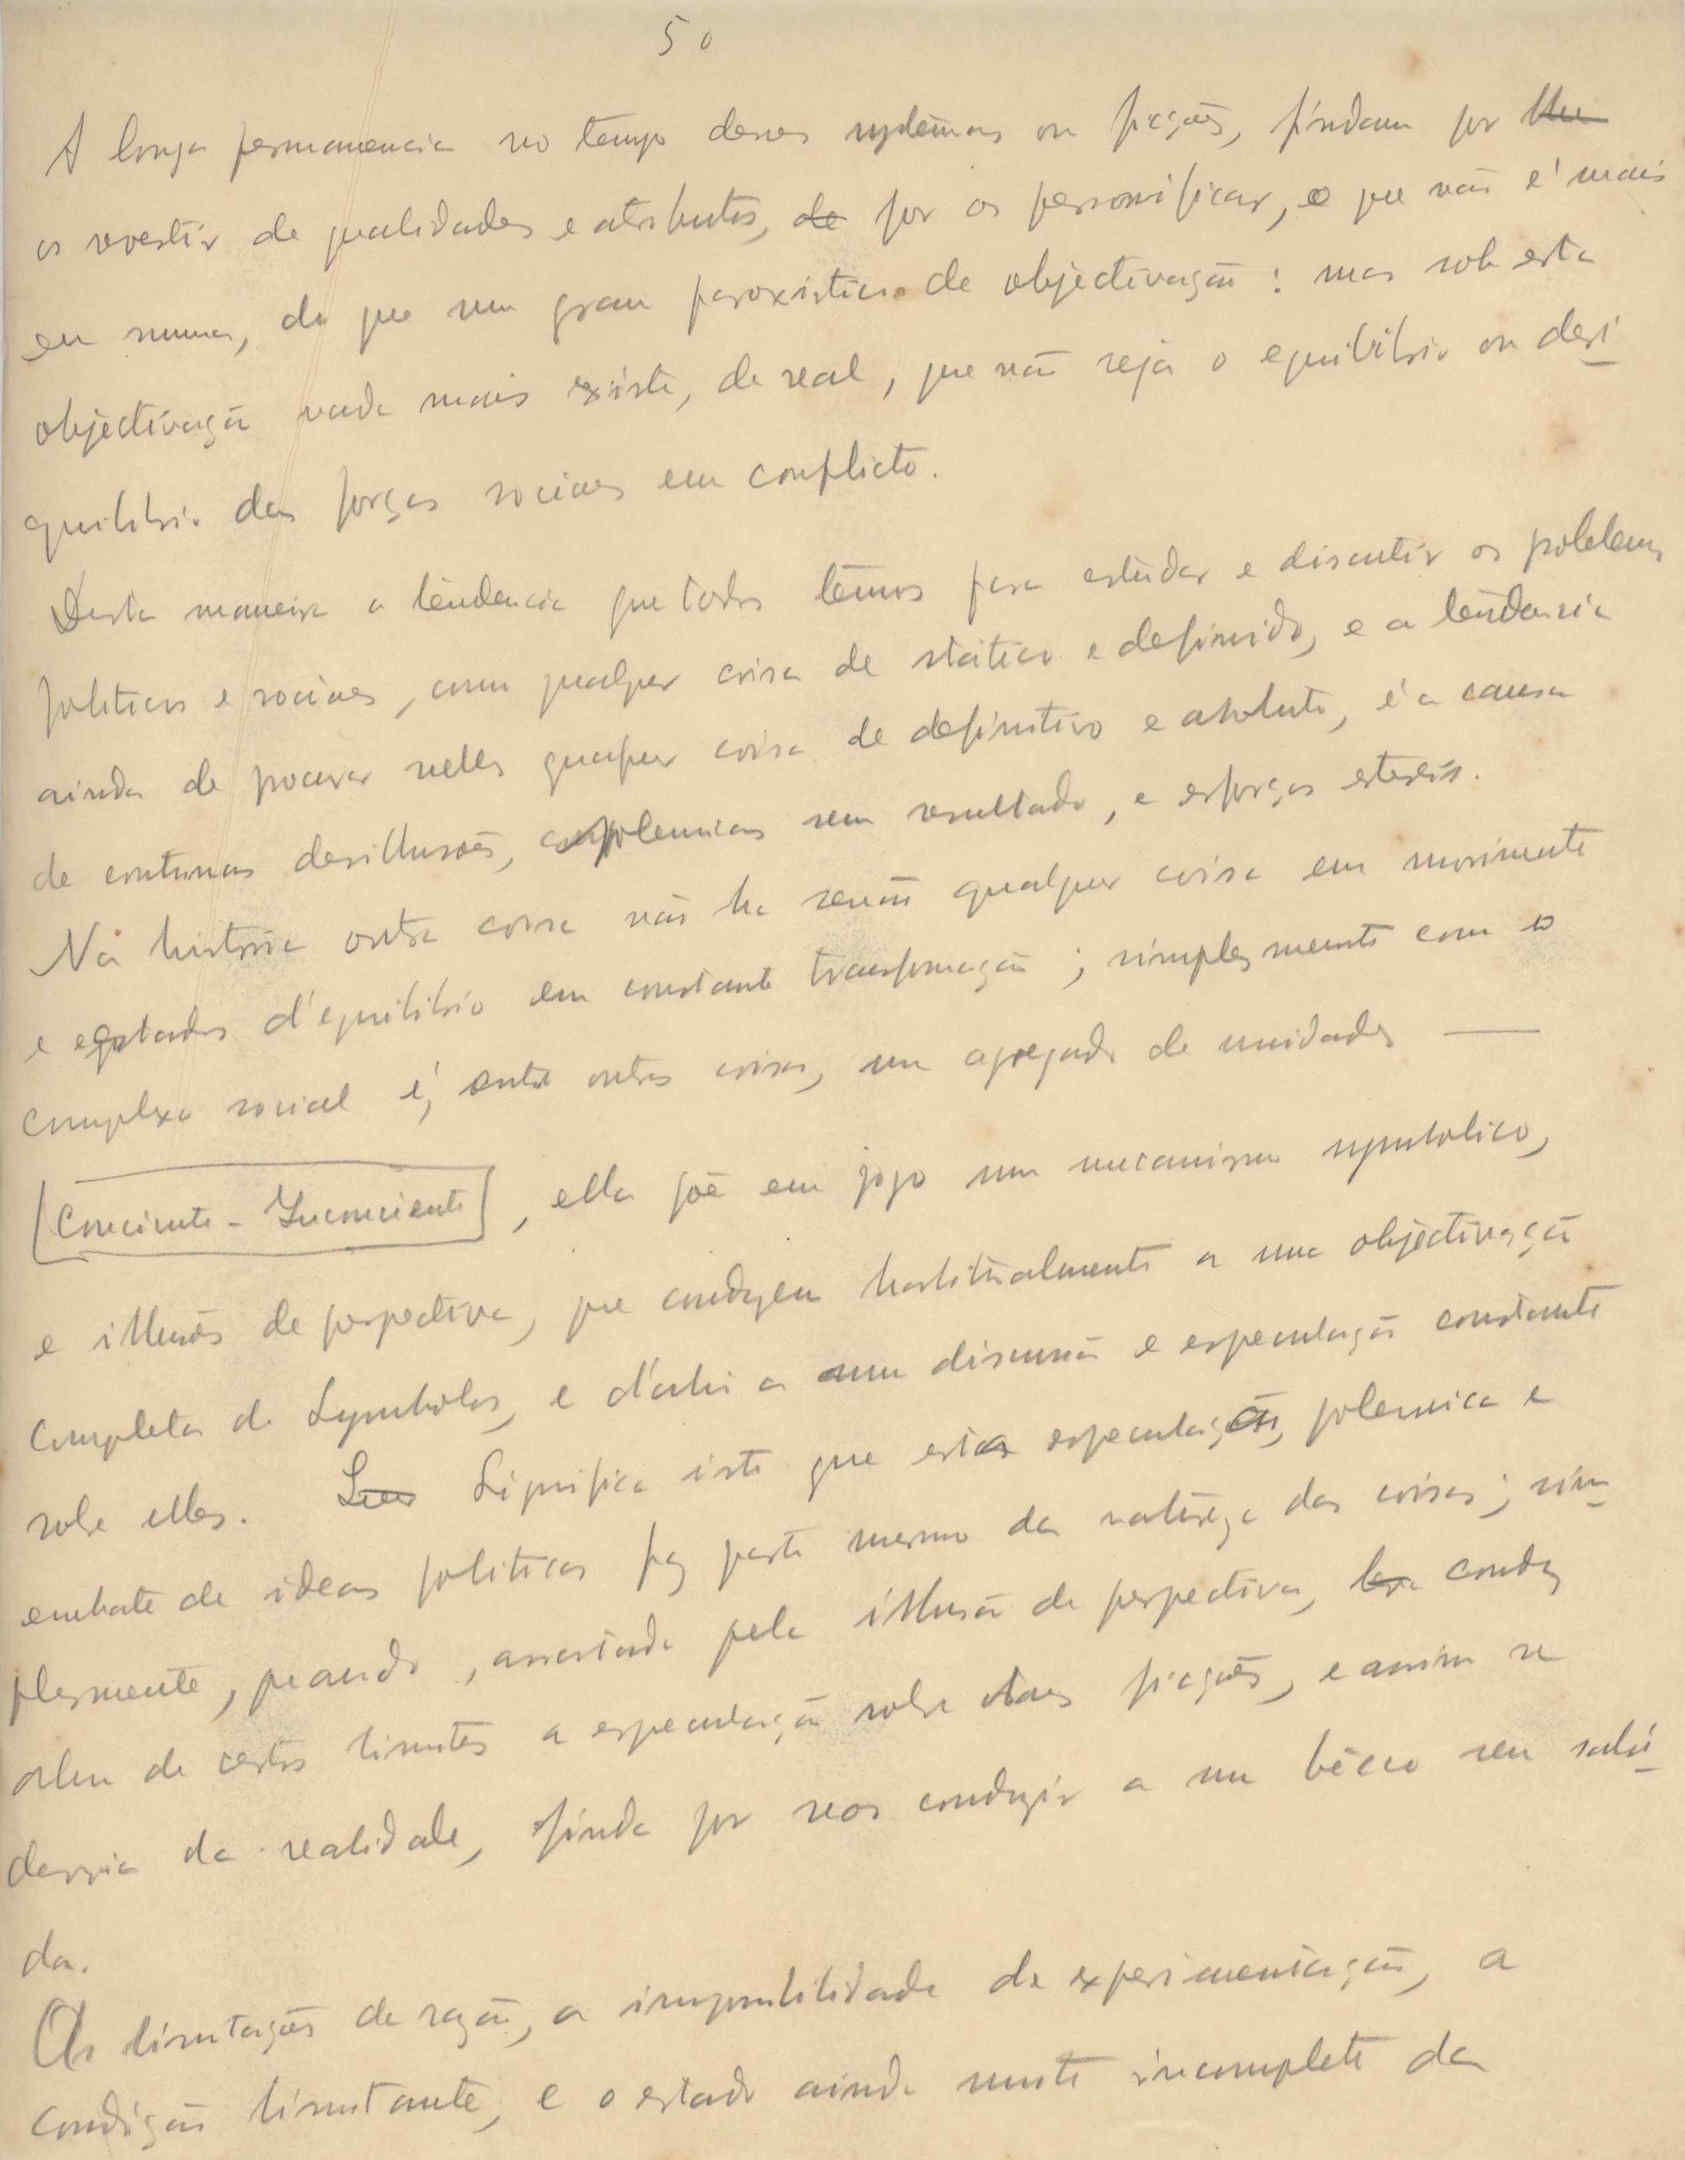 50
A longa permanencia no tempo desses systemas ou ficções, findam por
os revestir de qualidades e atributos, de por os personificar, o que não é mais
em summa, do que um grau paroxistico de objectivação: mas sob esta
objectivação nada mais existe, de real, que não seja o equilibrio ou desi
quilibrio das forças sociaes em conflicto.
Desta maneira a tendencia que todos temos para estudar e discutir os problemas
politicos e sociaes, como qualquer coisa de statico e definido, e a tendencia
ainda de procurar nelles qualquer coisa de definitivo e absoluto, é a causa
de continuas desillusões, polemicas sem resultado, e esforços estereis.
Na historia outra coisa não ha senão qualquer coisa em movimento
e estados d'equilibrio em constante transformação; simplesmente como o
complexo social é, entre outras coisas, um agregado de unidades —
[Conciente - Inconciente], ella põe em jogo um mecanismo symbolico,
e illusões de perpectiva, que conduzem habitualmente a uma objectivação
completa de Symbolos, e d'ahi a uma discussão e especulação constante
sobre elles. Significa isto que esta especulação, polemica e
embate de ideas politicas faz parte mesmo da natureza das coisas; sim
plesmente, quando, arrastada pela illusão de perpectiva, conduz
alem de certos limites a especulação sobre ficções, e assim se
desvia da realidade, finda por nos conduzir a um bêcco sem sahi
da.
As limitações da razão, a impossibilidade da experimentação, a
condição limitante, e o estado ainda muito incompleto da